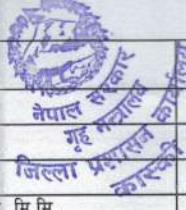 नेपाल सरकार
गृह मन्त्रालय
जिल्ला प्रशासन कार्यालय
कास्की
मि.मि.